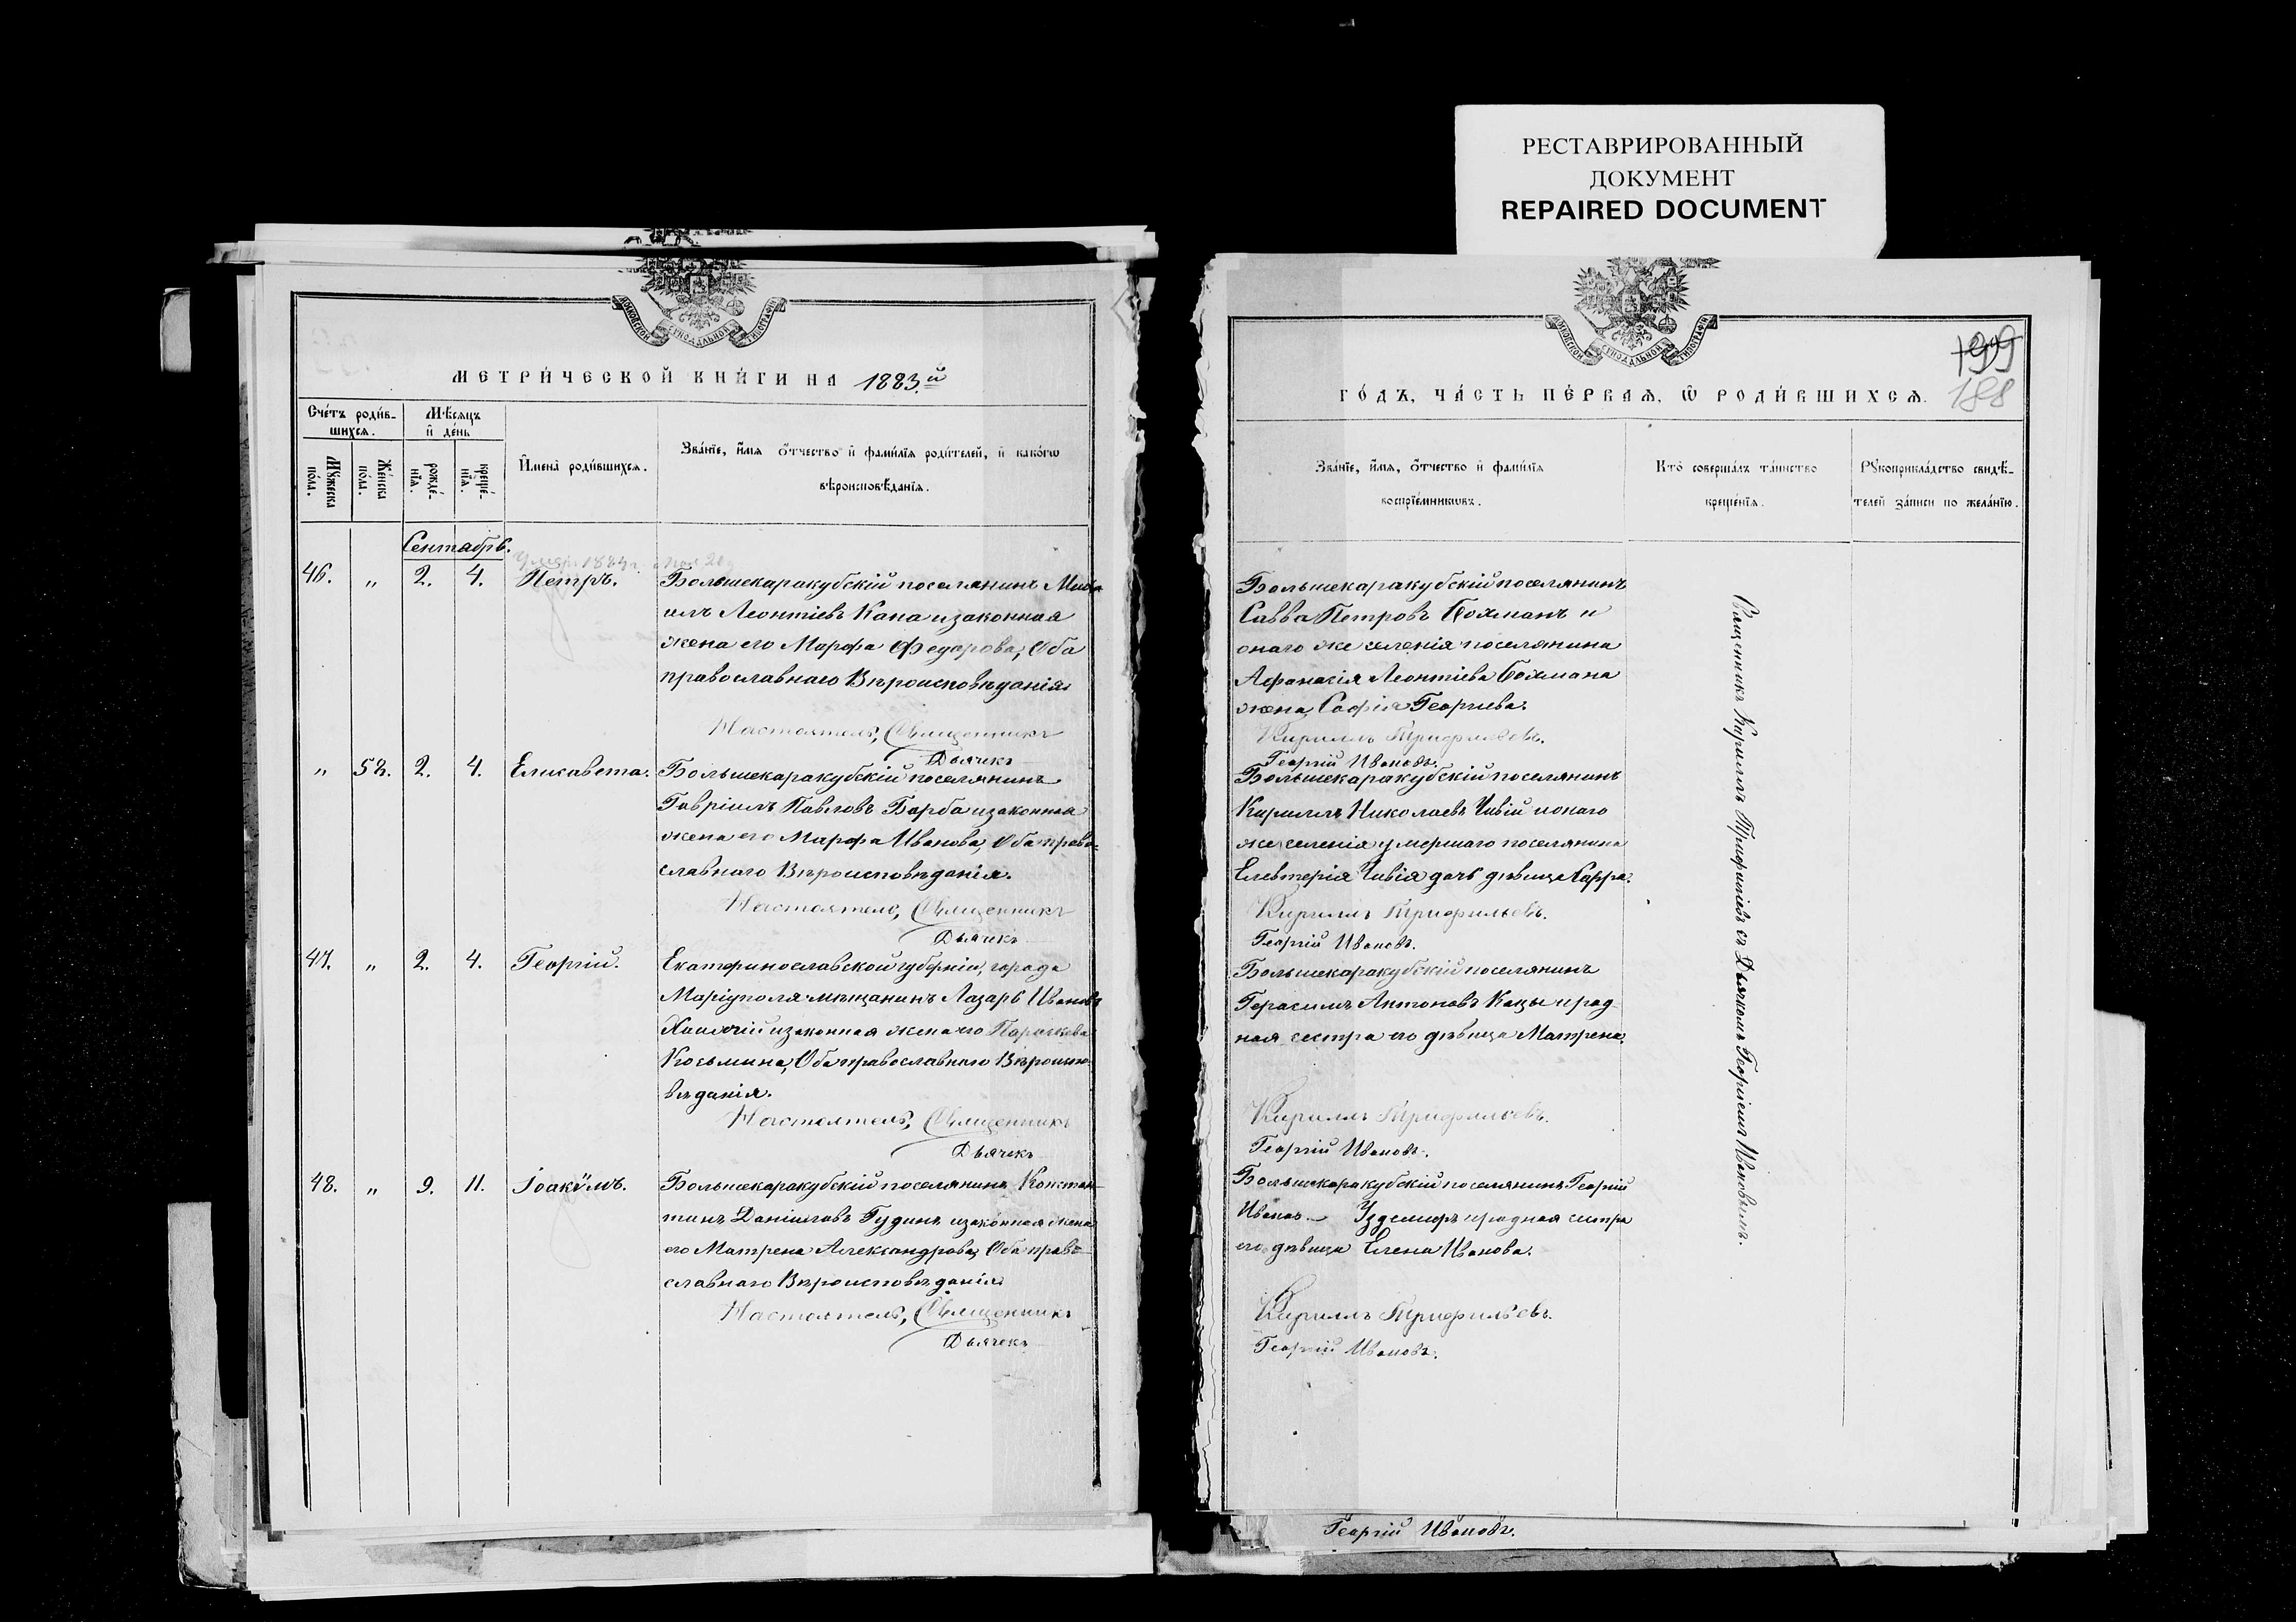 РЕСТАВРИРОВАННЫЙ
ДОКУМЕНТ
REPAIRED DOCUMENT
МОСКОВСКОЙ СѴНОДАЛЬНОЙ ТИПОГРАФІИ
МЕТРИ́ЧЕСКОЙ КНИ́ГИ НА 1883й
Сче́тъ роди́в-
шихсѧ.
Мѣ́сѧцъ
и҆ де́нь
Мꙋ́жеска
по́ла.
Же́нска
по́ла.
рожде́-
нїѧ.
креще́-
нїѧ.
И҆мена̀ роди́вшихсѧ.
Зва́нїе, и҆́мѧ ѻ҆́тчество и҆ фами́лїѧ роди́телей, и҆ како́гѡ
вѣроисповѣ́данїѧ.
Сентябрь.
46. „ 2. 4. Петръ.
Большекаракубскій поселянинъ Миха
илъ Леонтіевъ Кана и законная
жена его Марфа Федорова, Оба
православнаго Вѣроисповѣданія
Настоятель, Священникъ
Дьячекъ
„ 52. 2. 4. Елисавета.
Большекаракубскій поселянинъ
Гавріилъ Павловъ Барба и законная
жена его Марфа Иванова, Оба право-
славнаго Вѣроисповѣданія.
Настоятель, Священникъ
Дьячекъ
47. „ 2. 4. Георгій.
Екатеринославской губерніи, города
Маріуполя мѣщанинъ Лазарь Ивановъ
и законная жена его Параскева
Косьмина, Оба православнаго Вѣроиспо-
вѣданія.
Настоятель, Священникъ
Дьячекъ
48. „ 9. 11. Іоакѵмъ.
Большекаракубскій поселянинъ Констан-
тинъ Даніиловъ Гудинъ и законная жена
его Матрена Александрова, Оба право-
славнаго Вѣроисповѣданія
Настоятель, Священникъ
Дьячекъ
МОСКОВСКОЙ СѴНОДАЛЬНОЙ ТИПОГРАФІИ
199
188
ГО́ДЪ, ЧА́СТЬ ПЕ́РВАѦ, Ѡ҆ РОДИ́ВШИХСѦ.
Зва́нїе, и҆́мѧ, ѻ҆́тчество и҆ фами́лїѧ
воспрїе́мникѡвъ.
Кто̀ соверша́лъ та́инство
креще́нїѧ.
Рꙋкоприкла́дство свидѣ́-
телей за́писи по жела́нїю.
Большекаракубскій поселянинъ
Савва Петровъ Бохманъ и
онаго же селенія поселянина
Афанасія Леонтіева Бохмана
жена Софія Георгіева.
Кириллъ Трифильевъ.
Георгій Ивановъ.
Большекаракубскій поселянинъ
Кириллъ Николаевъ Чивій и онаго
же селенія умершаго поселянина
Елевтерія Чивія дочь дѣвица Сарра.
Кириллъ Трифильевъ.
Георгій Ивановъ.
Большекаракубскій поселянинъ
Герасимъ Антоновъ Кацы и род-
ная сестра его дѣвица Матрена.
Кириллъ Трифильевъ.
Георгій Ивановъ.
Большекаракубскій поселянинъ Георгій
Ивановъ Уздемиръ и родная сестра
его дѣвица Елена Иванова.
Кириллъ Трифильевъ.
Георгій Ивановъ.
Священникъ Кириллъ Трифиліевъ съ Дьячкомъ Георгіемъ Ивановымъ.
Георгій Ивановъ.